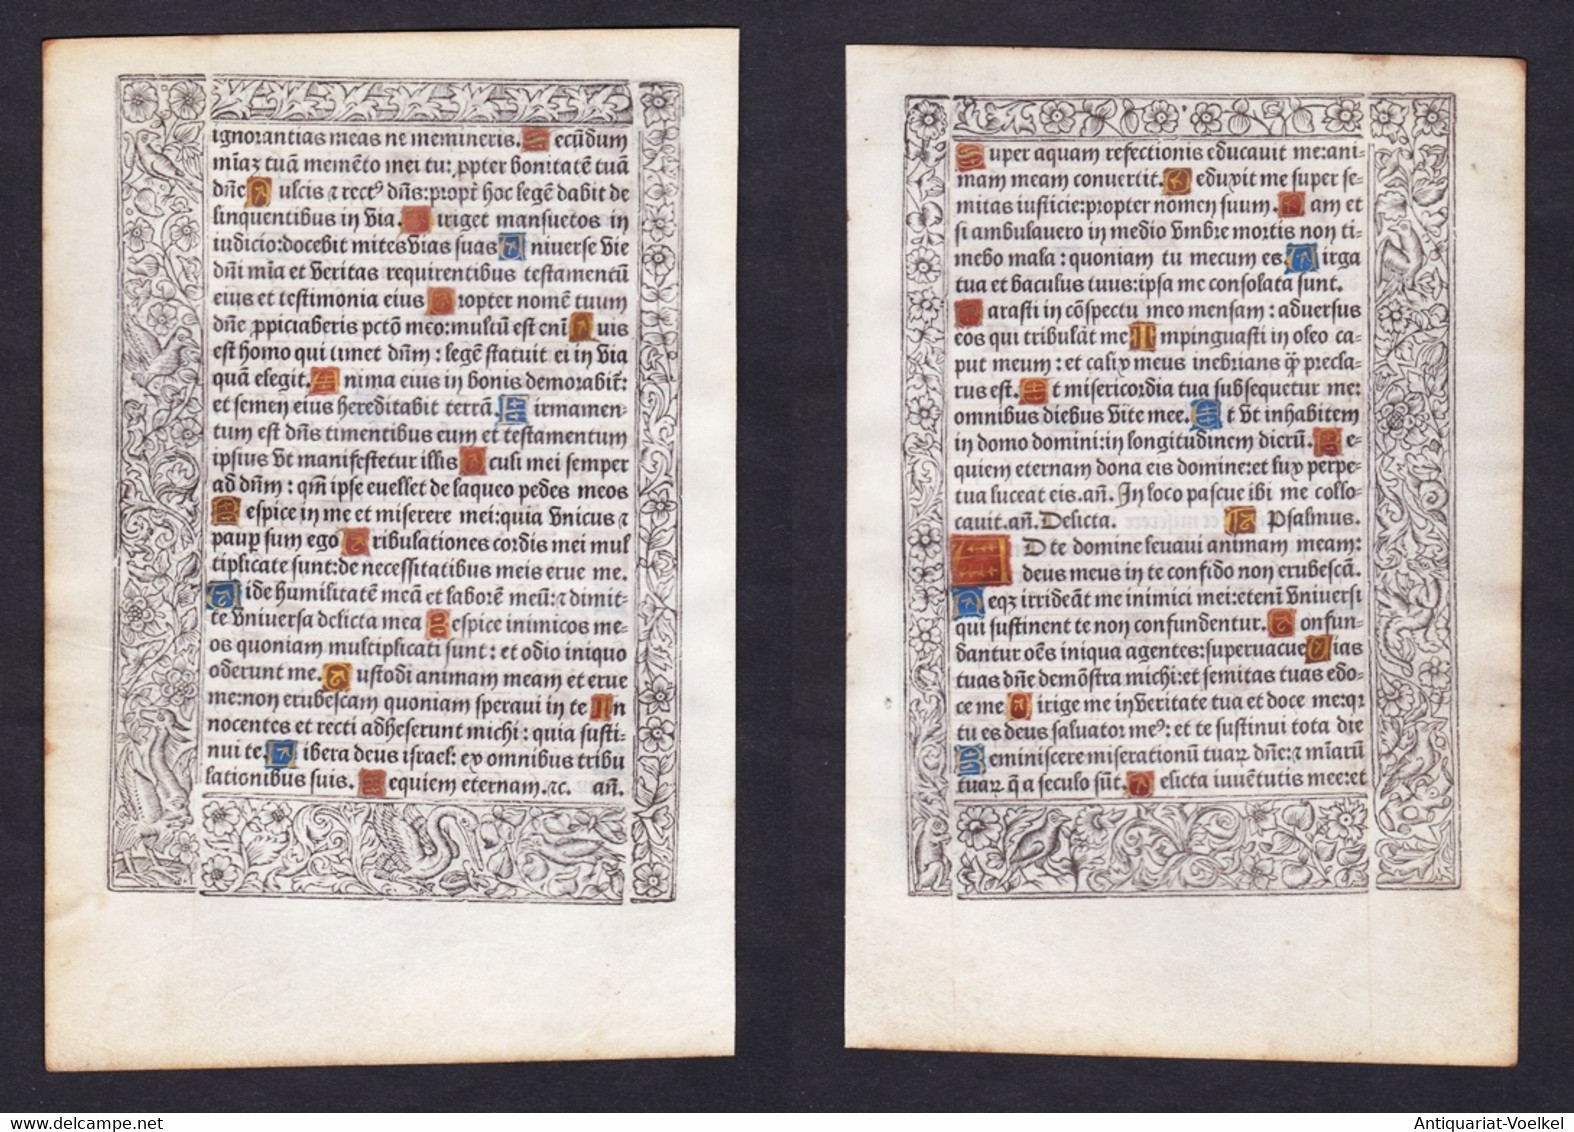 ignorantias meas ne memineris. Secūdum
mīaꝫ tuā memēto mei tu: ꝓpter bonitatē tuā
dn̄e Dulcis ⁊ rectꝰ dn̄s: propt̄ hoc legē dabit de
linquentibus in via. Diriget mansuetos in
iudicio: docebit mites vias suas Universe vie
dn̄i mīa et veritas requirentibus testamentū
eius et testimonia eius Propter nomē tuum
dn̄e ꝓpiciaberis pctō meo: multū est enī Quis
est homo qui timet dn̄m: legē statuit ei in via
quā elegit. Anima eius in bonis demorabit̄:
et semen eius hereditabit terrā. Firmamen-
tum est dn̄s timentibus eum et testamentum
ipsius vt manifestetur illis Oculi mei semper
ad dn̄m: qm̄ ipse euellet de laqueo pedes meos
Respice in me et miserere mei: quia vnicus ⁊
paup̲ sum ego Tribulationes cordis mei mul
tiplicate sunt: de necessitatibus meis erue me.
Vide humilitatē meā et laborē meū: ⁊ dimit-
te vniuersa delicta mea Respice inimicos me-
os quoniam multiplicati sunt: et odio iniquo
oderunt me. Custodi animam meam et erue
me: non erubescam quoniam speraui in te In
nocentes et recti adheserunt michi: quia susti-
nui te. Libera deus israel: ex omnibus tribu
lationibus suis. Requiem eternam. ⁊c. an̄.
Super aquam refectionis educauit me: ani-
mam meam conuertit. Deduxit me super se-
mitas iusticie: propter nomen suum. Nam et
si ambulauero in medio vmbre mortis non ti-
mebo mala: quoniam tu mecum es. Virga
tua et baculus tuus: ipsa me consolata sunt.
Parasti in cōspectu meo mensam: aduersus
eos qui tribulāt me Impinguasti in oleo ca
put meum: et calix meus inebrians q̄ȝ precla-
rus est. Et misericordia tua subsequetur me:
omnibus diebus vite mee. Et vt inhabitem
in domo domini: in longitudinem dierū. Re-
quiem eternam dona eis domine: et lux perpe-
tua luceat eis. an̄. In loco pascue ibi me collo-
cauit. an̄. Delicta. Psalmus.
AD te domine leuaui animam meam:
deus meus in te confido non erubescā.
Neqꝫ irrideāt me inimici mei: etenī vniuersi
qui sustinent te non confundentur. Confun-
dantur oēs iniqua agentes: superuacue Vias
tuas dn̄e demōstra michi: et semitas tuas edo-
ce me Dirige me in veritate tua et doce me: qꝛ
tu es deus saluator meꝰ: et te sustinui tota die
Reminiscere miserationū tuaꝝ dn̄e: ⁊ mīarū
tuaꝝ q̄ a seculo sūt. Delicta iuuētutis mee: et
Antiquariat-Voelkel